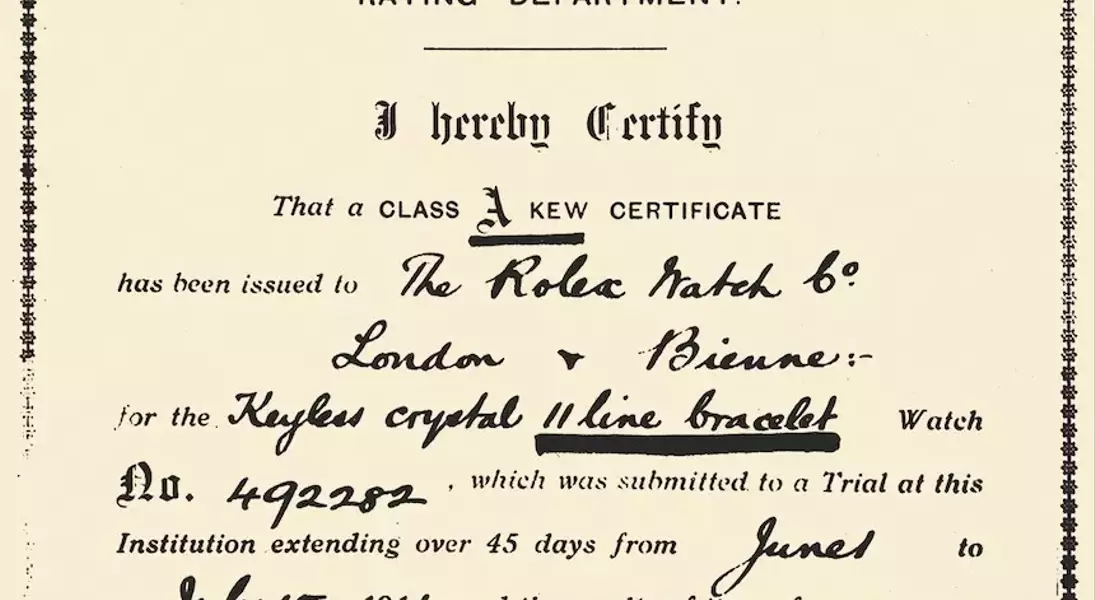 RATING DEPARTMENT.
I hereby Certify
That a CLASS A KEW CERTIFICATE
has been issued to The Rolex Watch Co
London & Bienne:-
for the Keyless crystal 11 line bracelet Watch
No. 492282, which was submitted to a Trial at this
Institution extending over 45 days from June 1 to
July 15